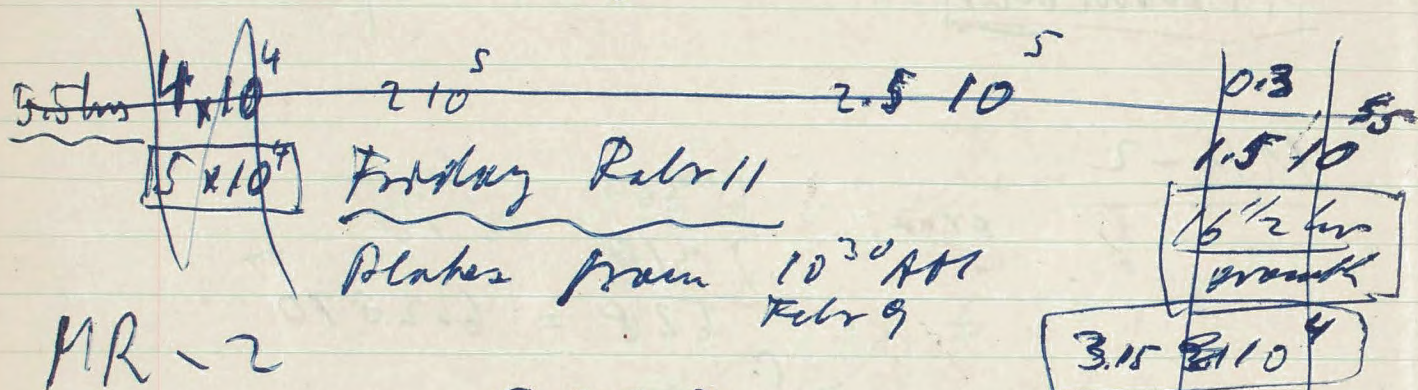 5.5 hrs 4 x 10^4 2 10^5 2.5 10^5 0.3
5 x 10^7 Friday Febr 11 1.5 10^5
Plates from 10^30 AM 16 1/2 hrs
Febr 9 growth
MR-2 3.15 10^4